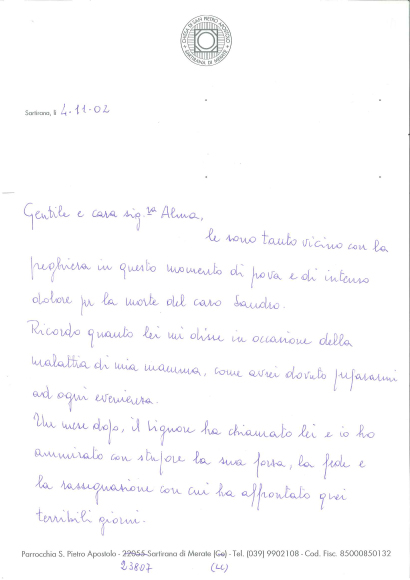 CHIESA DI SAN PIETRO APOSTOLO
SARTIRANA DI MERATE
Sartirana, li 4-11-02
Gentile e cara sig.ra Alma,
le sono tanto vicino con la
preghiera in questo momento di prova e di intenso
dolore per la morte del caro Sandro.
Ricordo quanto lei mi disse in occasione della
malattia di mia mamma, come avrei dovuto prepararmi
ad ogni evenienza.
Un mese dopo, il Signore ha chiamato lei e io ho
ammirato con stupore la sua forza, la fede e
la rassegnazione con cui ha affrontato quei
terribili giorni.
Parrocchia S. Pietro Apostolo - 22055 Sartirana di Merate (Co) - Tel. (039) 9902108 - Cod. Fisc. 85000850132
23807 (LC)